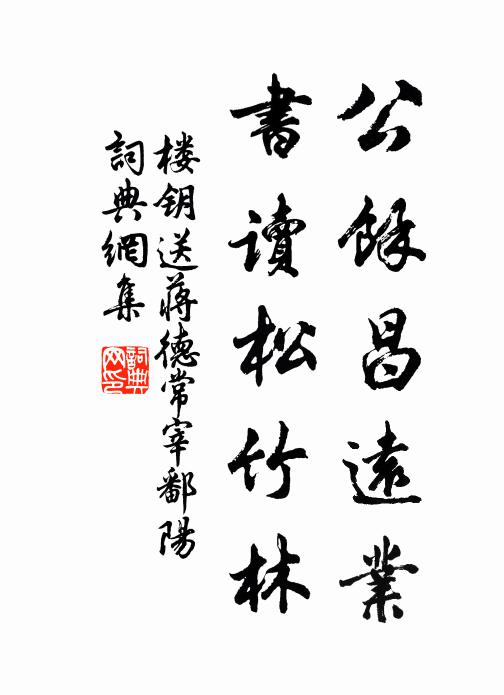 公餘昌遠業
書讀松竹林
楼钥送蔣德常宰鄱陽
詞典網集
詞典网印